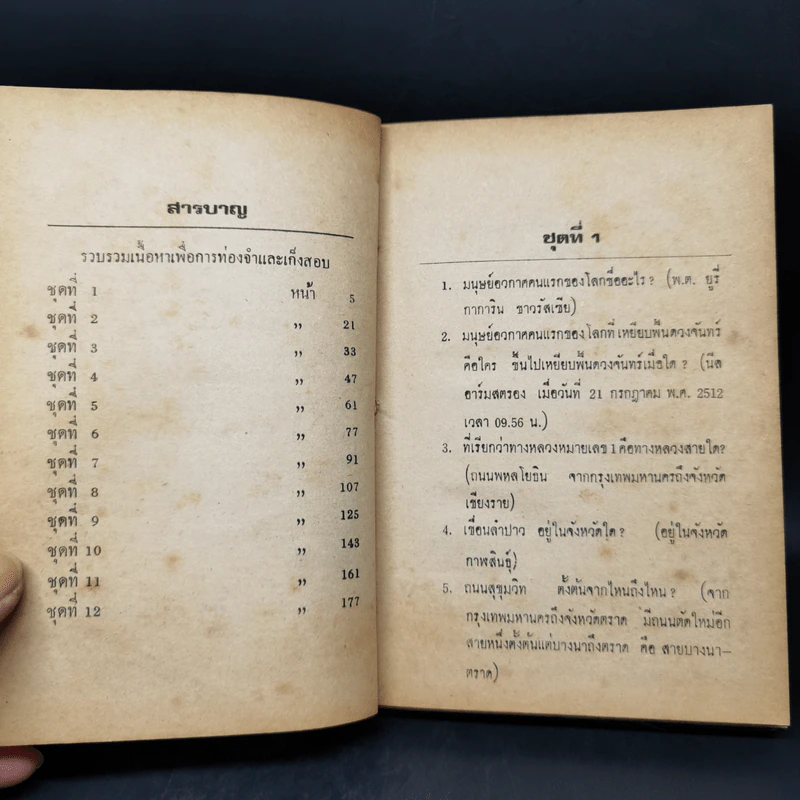 สารบาญ
รวบรวมเนื้อหาเพื่อการท่องจำและเก็งสอบ
ชุดที่ 1 หน้า 5
ชุดที่ 2 ,, 21
ชุดที่ 3 ,, 33
ชุดที่ 4 ,, 47
ชุดที่ 5 ,, 61
ชุดที่ 6 ,, 77
ชุดที่ 7 ,, 91
ชุดที่ 8 ,, 107
ชุดที่ 9 ,, 125
ชุดที่ 10 ,, 143
ชุดที่ 11 ,, 161
ชุดที่ 12 ,, 177
ชุดที่ 1
1. มนุษย์อวกาศคนแรกของโลกชื่ออะไร ? (พ.ต. ยูรี่
กาการิน ชาวรัสเซีย)
2. มนุษย์อวกาศคนแรกของโลกที่เหยียบพื้นดวงจันทร์
คือใคร ขึ้นไปเหยียบพื้นดวงจันทร์เมื่อใด ? (นีล
อาร์มสตรอง เมื่อวันที่ 21 กรกฎาคม พ.ศ. 2512
เวลา 09.56 น.)
3. ที่เรียกว่าทางหลวงหมายเลข 1 คือทางหลวงสายใด?
(ถนนพหลโยธิน จากกรุงเทพมหานครถึงจังหวัด
เชียงราย)
4. เขื่อนลำปาว อยู่ในจังหวัดใด ? (อยู่ในจังหวัด
กาฬสินธุ์)
5. ถนนสุขุมวิท ตั้งต้นจากไหนถึงไหน ? (จาก
กรุงเทพมหานครถึงจังหวัดตราด มีถนนตัดใหม่อีก
สายหนึ่งตั้งต้นแต่บางนาถึงตราด คือ สายบางนา-
ตราด)